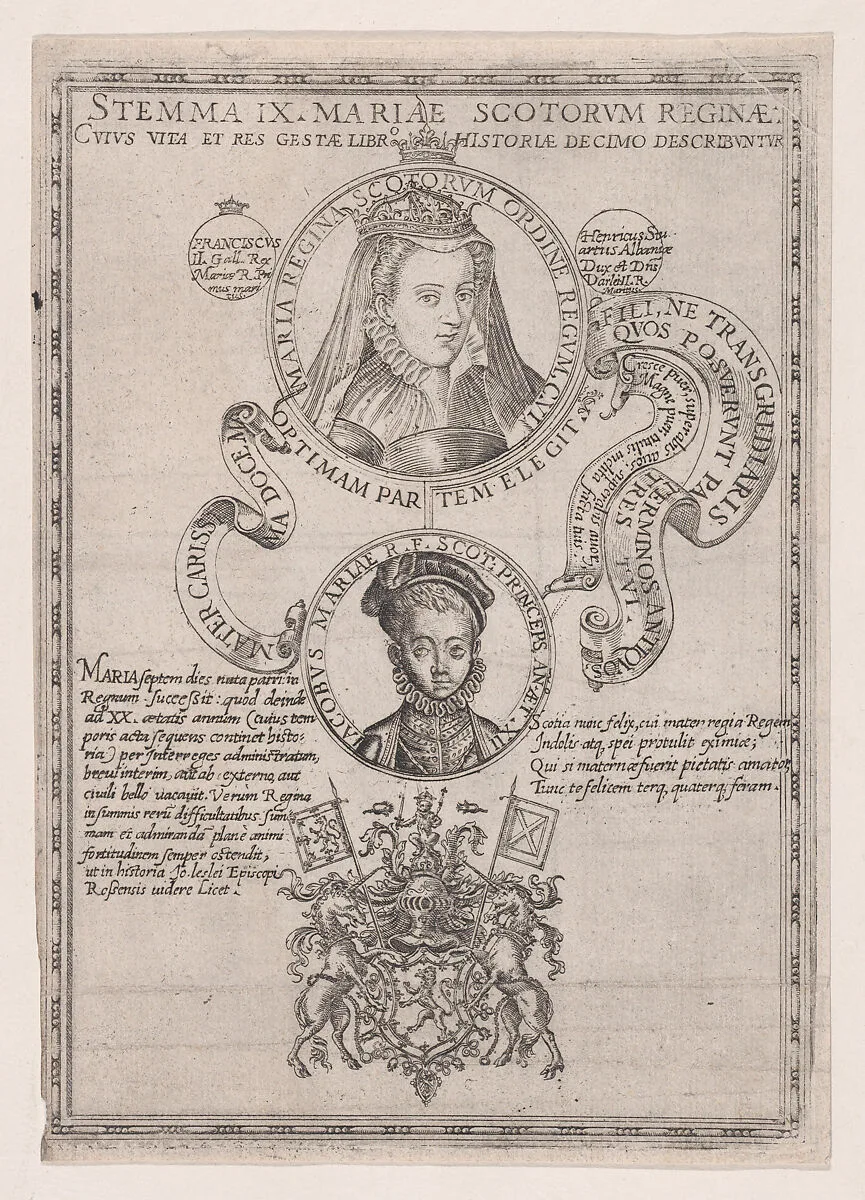 STEMMA IX. MARIAE SCOTORVM REGINÆ.
CVIVS VITA ET RES GESTÆ LIBRᵒ HISTORIÆ DECIMO DESCRIBVNTVR
FRANCISCVS
II. Gall. Rex
Mariæ R. Pri
mus mari
tus.
MARIA REGINA SCOTORVM ORDINE REGVM. CVII
OPTIMAM PARTEM ELEGIT.
Henricus Stu
artus Albaniæ
Dux et Dn̄s
Darle II. R.
Maritus.
FILI, NE TRANSGREDIARIS
TERMINOS ANTIQVOS
QVOS POSVERVNT PA
TRES TVI
Cresce puer, superabis auos: superabis auor,
Magne puer, titulis inclita facta tuis.
MATER CARISS
MA DOCE M
IACOBVS MARIAE R. F. SCOT: PRINCEPS AN. ÆT. XII
MARIA septem dies nata patri in
Regnum successit: quod deinde
ad XX. ætatis annum (cuius tem
poris acta sequens continet histo-
ria) per Interreges administratum,
breui interim, aut ab externo, aut
ciuili bello uacauit. Verùm Regina
in summis rerū difficultatibus sum
mam et admirandā planè animi
fortitudinem semper ostendit,
ut in historia Jo. leslei Episcopi
Rossensis uidere Licet.
Scotia nunc felix, cui mater regia Regem
Indolis atq, spei protulit eximiæ;
Qui si maternæ fuerit pietatis amator,
Tunc te felicem terq, quaterq, feram.